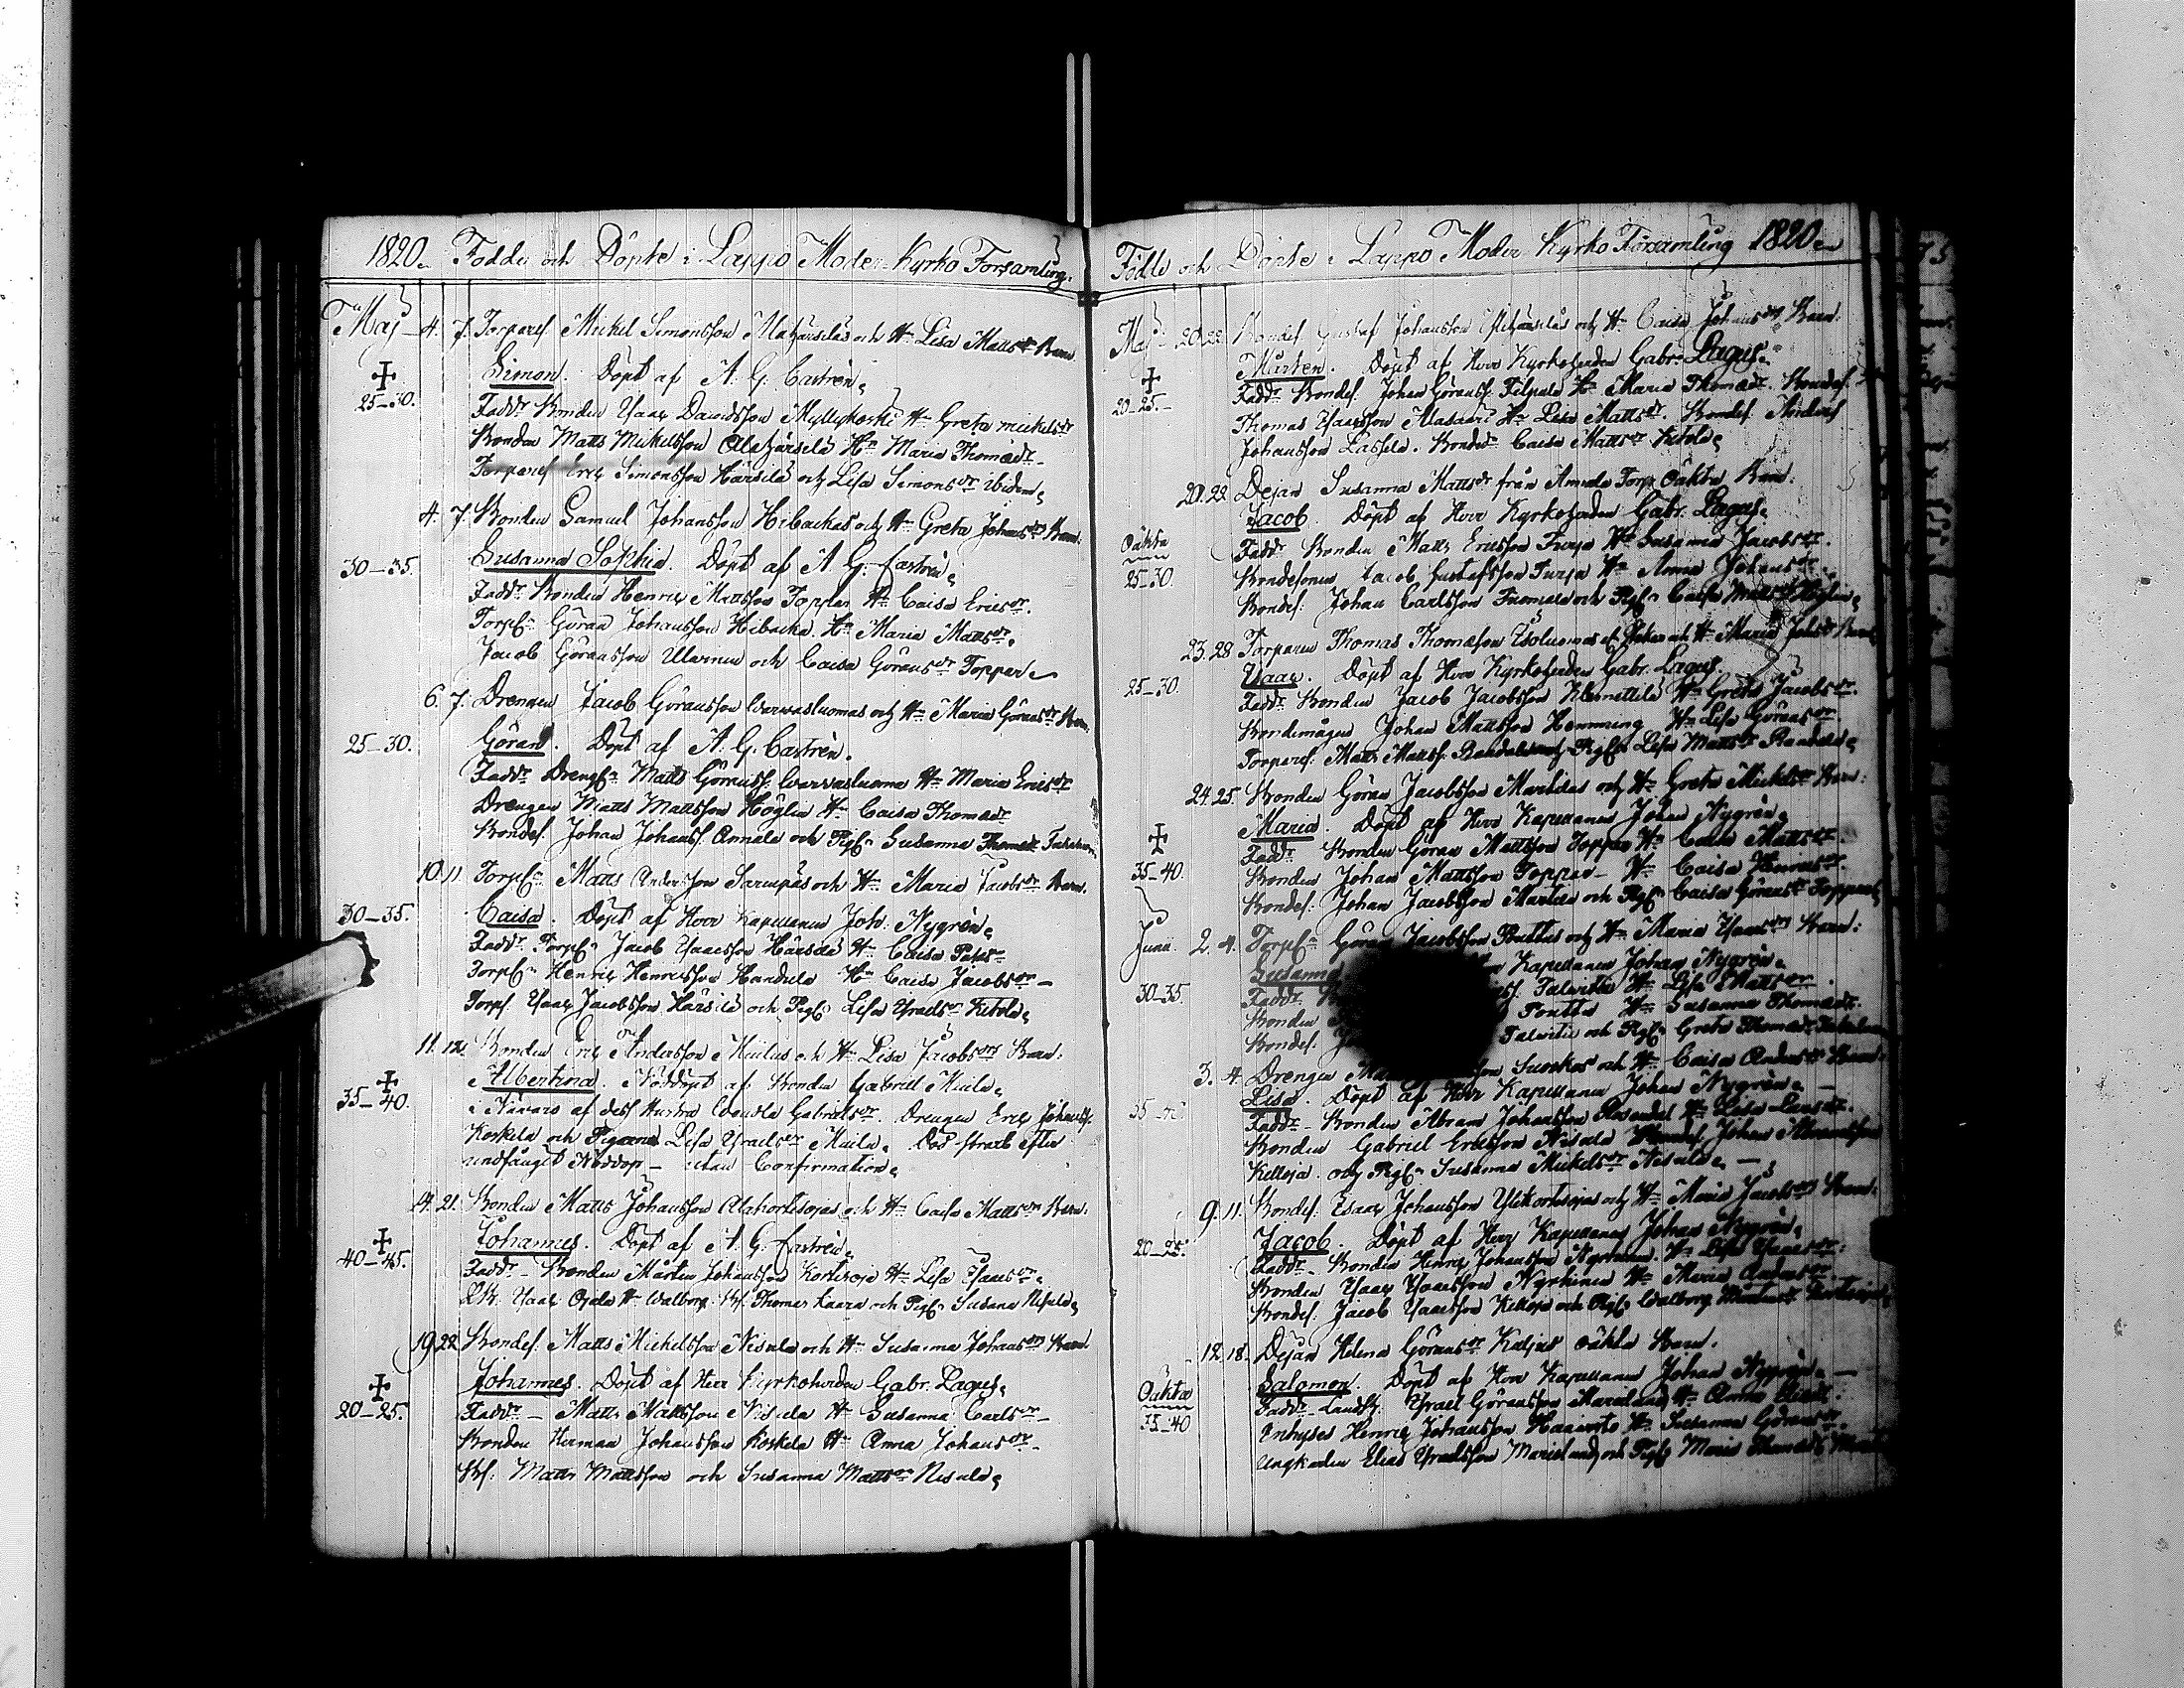 1820. Födde och Döpte i Lappo Moder Kyrko Församling.
Maj 4. 7. Torparef. Mickel Simonsson Alahärsiläs och H. Lisa Mattsdr Barn
Simon. Döpt af A. G. Castrén.
25-30.
Faddr Bonden Isaac Davidsson Myllykoski H. Greta Mickelsdr
Bonden Matts Mickelsson Alahärsilä Hn Maria Thomasdr
Torparef Eric Simonsson Härsilä och Lisa Simonsdr ibidem.
4. 7. Bonden Samuel Johansson Hibackas och Hn Greta Johansdr Barn.
Susanna Sophia. Döpt af A. G. Castrén.
30-35.
Faddr Bonden Henric Mattsson Toppar Hn Caisa Ericsdr.
Torpn Göran Johansson Hibacka Hn Maria Mattsdr.
Jacob Göransson och Caisa Göransdr Toppar.
6. 7. Drengen Jacob Göransson Varvasluomas och Hn Maria Göransdr Barn.
Göran. Döpt af A. G. Castrén.
25-30.
Faddr Drengn Matts Göranss. Varvasluoma Hn Maria Ericsdr
Drengen Matts Mattsson Höglin Hn Caisa Thomasdr
Bondes. Johan Johanss. Annala och Pign Susanna Thomasdr
10. 11. Torpn Matts Andersson och Hn Maria Jacobsdr Barn.
Caisa. Döpt af Herr Kapellanen Joh. Nygrén.
30-35.
Faddr Torpn Jacob Isaacsson Härsilä Hn Caisa
Torpn Henric Henricsson Handula Hn Caisa Jacobsdr
Torpf Isaac Jacobsson Härsilä och Pign Lisa Israelsdr Kitola.
11. 12. Bonden Eric Andersson Huilus och Hn Lisa Jacobsdr Barn.
Albertina. Nöddöpt af Bonden Gabriel Huila.
35-40.
i Närvaro af dess Hustru Gabrielsdr. Drengen Eric Johanss.
Koskela och Pigorna Lisa Israelsdr Huila. Död strax efter
undfånget Nöddop - utan Confirmation.
14. 21. Bonden Matts Johansson Alakortesojas och Hn Caisa Mattsdr Barn.
Johannes. Döpt af A. G. Castrén.
40-45.
Faddr - Bonden Mårten Johansson Kortesoja Hn Lisa Isaacsdr.
Isaac Ojala Hn Walborg. Bf. Thomas Kaara och Pign Susanna Nisula.
19. 22. Bondes. Matts Mickelsson Nisula och Hn Susanna Johansdr Barn
Johannes. Döpt af Herr Kyrkoherden Gabr. Lagus.
20-25.
Faddr - Matts Mattsson Nisula Hn Susanna Carlsdr
Bonden Herman Johansson Koskela Hn Anna Johansdr
Bf. Matts Mattsson och Susanna Mattsdr Nisula.
Födde och Döpte i Lappo Moder Kyrko Församling 1820.
Maj 20. 22. Bondes Gustaf Johansson och Hn Caisa Johansdr Barn.
Mårten. Döpt af Herr Kyrkoherden Gabr. Lagus.
20-25.
Faddr Bondes. Johan Göranss. Filpula Hn Maria Thomasdr. Bondes.
Thomas Isaacsson Alasaari Hn Lisa Mattsdr. Bondes. Anders
Johansson Lassila. Caisa Mattsdr Kitola.
20. 22. Dejan Susanna Mattsdr från Annala Torp Oäkta Barn.
Jacob. Döpt af Herr Kyrkoherden Gabr. Lagus.
Oäkta
25-30.
Faddr Bonden Matts Ericsson Turja Hn Susanna Jacobsdr.
Bondesonen Jacob Gustafsson Turja Hn Anna Johansdr.
Bondes. Johan Carlsson Tuomela och Pign Caisa Mattsdr Höglin.
23. 28. Torparen Thomas Thomasson och Hn Maria Johansdr Barn
Isaac. Döpt af Herr Kyrkoherden Gabr. Lagus.
25-30.
Faddr Bonden Jacob Jacobsson Hn Greta Jacobsdr.
Bondemågen Johan Mattsson Hemming Hn Lisa Göransdr.
Torparef. Matts Mattss. Randala och Pign Lisa Mattsdr Randala.
24. 25. Bonden Göran Jacobsson Martilas och Hn Greta Mickelsdr Barn.
Maria. Döpt af Herr Kapellanen Johan Nygrén.
35-40.
Faddr Bonden Göran Mattsson Toppar Hn Caisa Mattsdr.
Bonden Johan Mattsson Toppar - Hn Caisa
Bondes. Johan Jacobsson Martila och Pign Caisa Göransdr Toppar.
Junii 2. 4. Torpn Göran Jacobsson Pouttus och Hn Maria Isaacsdr Barn.
Susanna Kapellanen Johan Nygrén.
30-35.
Faddr Talvitie Hn Lisa Mattsdr.
Bonden Pouttu Hn Susanna Thomasdr.
Bondes. Talvitie och Pign Greta Thomasdr
3. 4. Drengen Suorkas och Hn Caisa Andersdr Barn.
Lisa. Döpt af Herr Kapellanen Johan Nygrén.
35-40
Faddr - Bonden Abram Johansson Rosendal Hn Lisa
Bonden Gabriel Ericsson Nisula Bondes. Johan Abramsson
Killoja och Pign Susanna Mickelsdr Nisula.
9. 11. Bondes. Esaias Johansson Ylikortesojas och Hn Maria Jacobsdr Barn.
Jacob. Döpt af Herr Kapellanen Johan Nygrén.
20-25.
Faddr - Bonden Henric Johansson Nyrhinen Hn Lisa Isaacsdr.
Bonden Isaac Isaacsson Nyrhinen Hn Maria Andersdr
Bondes. Jacob Isaacsson Killoja och Pign Walborg
12. 18. Dejan Helena Göransdr Katjus oäkta Barn.
Salomon. Döpt af Herr Kapellanen Johan Nygrén.
Oäkta
35-40
Faddr - Israel Göransson Marieland Hn Anna
Inhyses Henric Johansson Haavisto Hn Susanna Göransdr.
Ungkarlen Elias Israelsson Marieland och Pign Maria Thomasdr